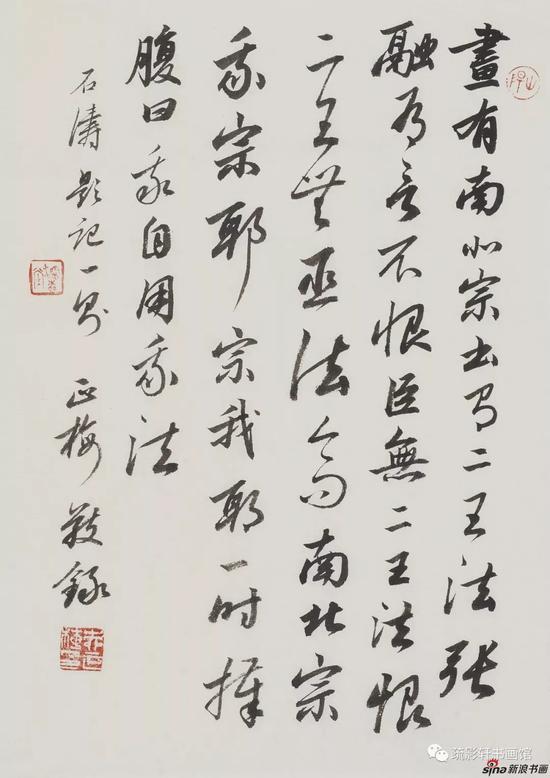 畫有南北宗書有二王法張
融有言不恨臣無二王法恨
二王無臣法今問南北宗
我宗耶宗我耶一時捧
腹曰我自用我法
石濤題記一則 正梅 敬錄
疏影轩书画馆
sina新浪书画